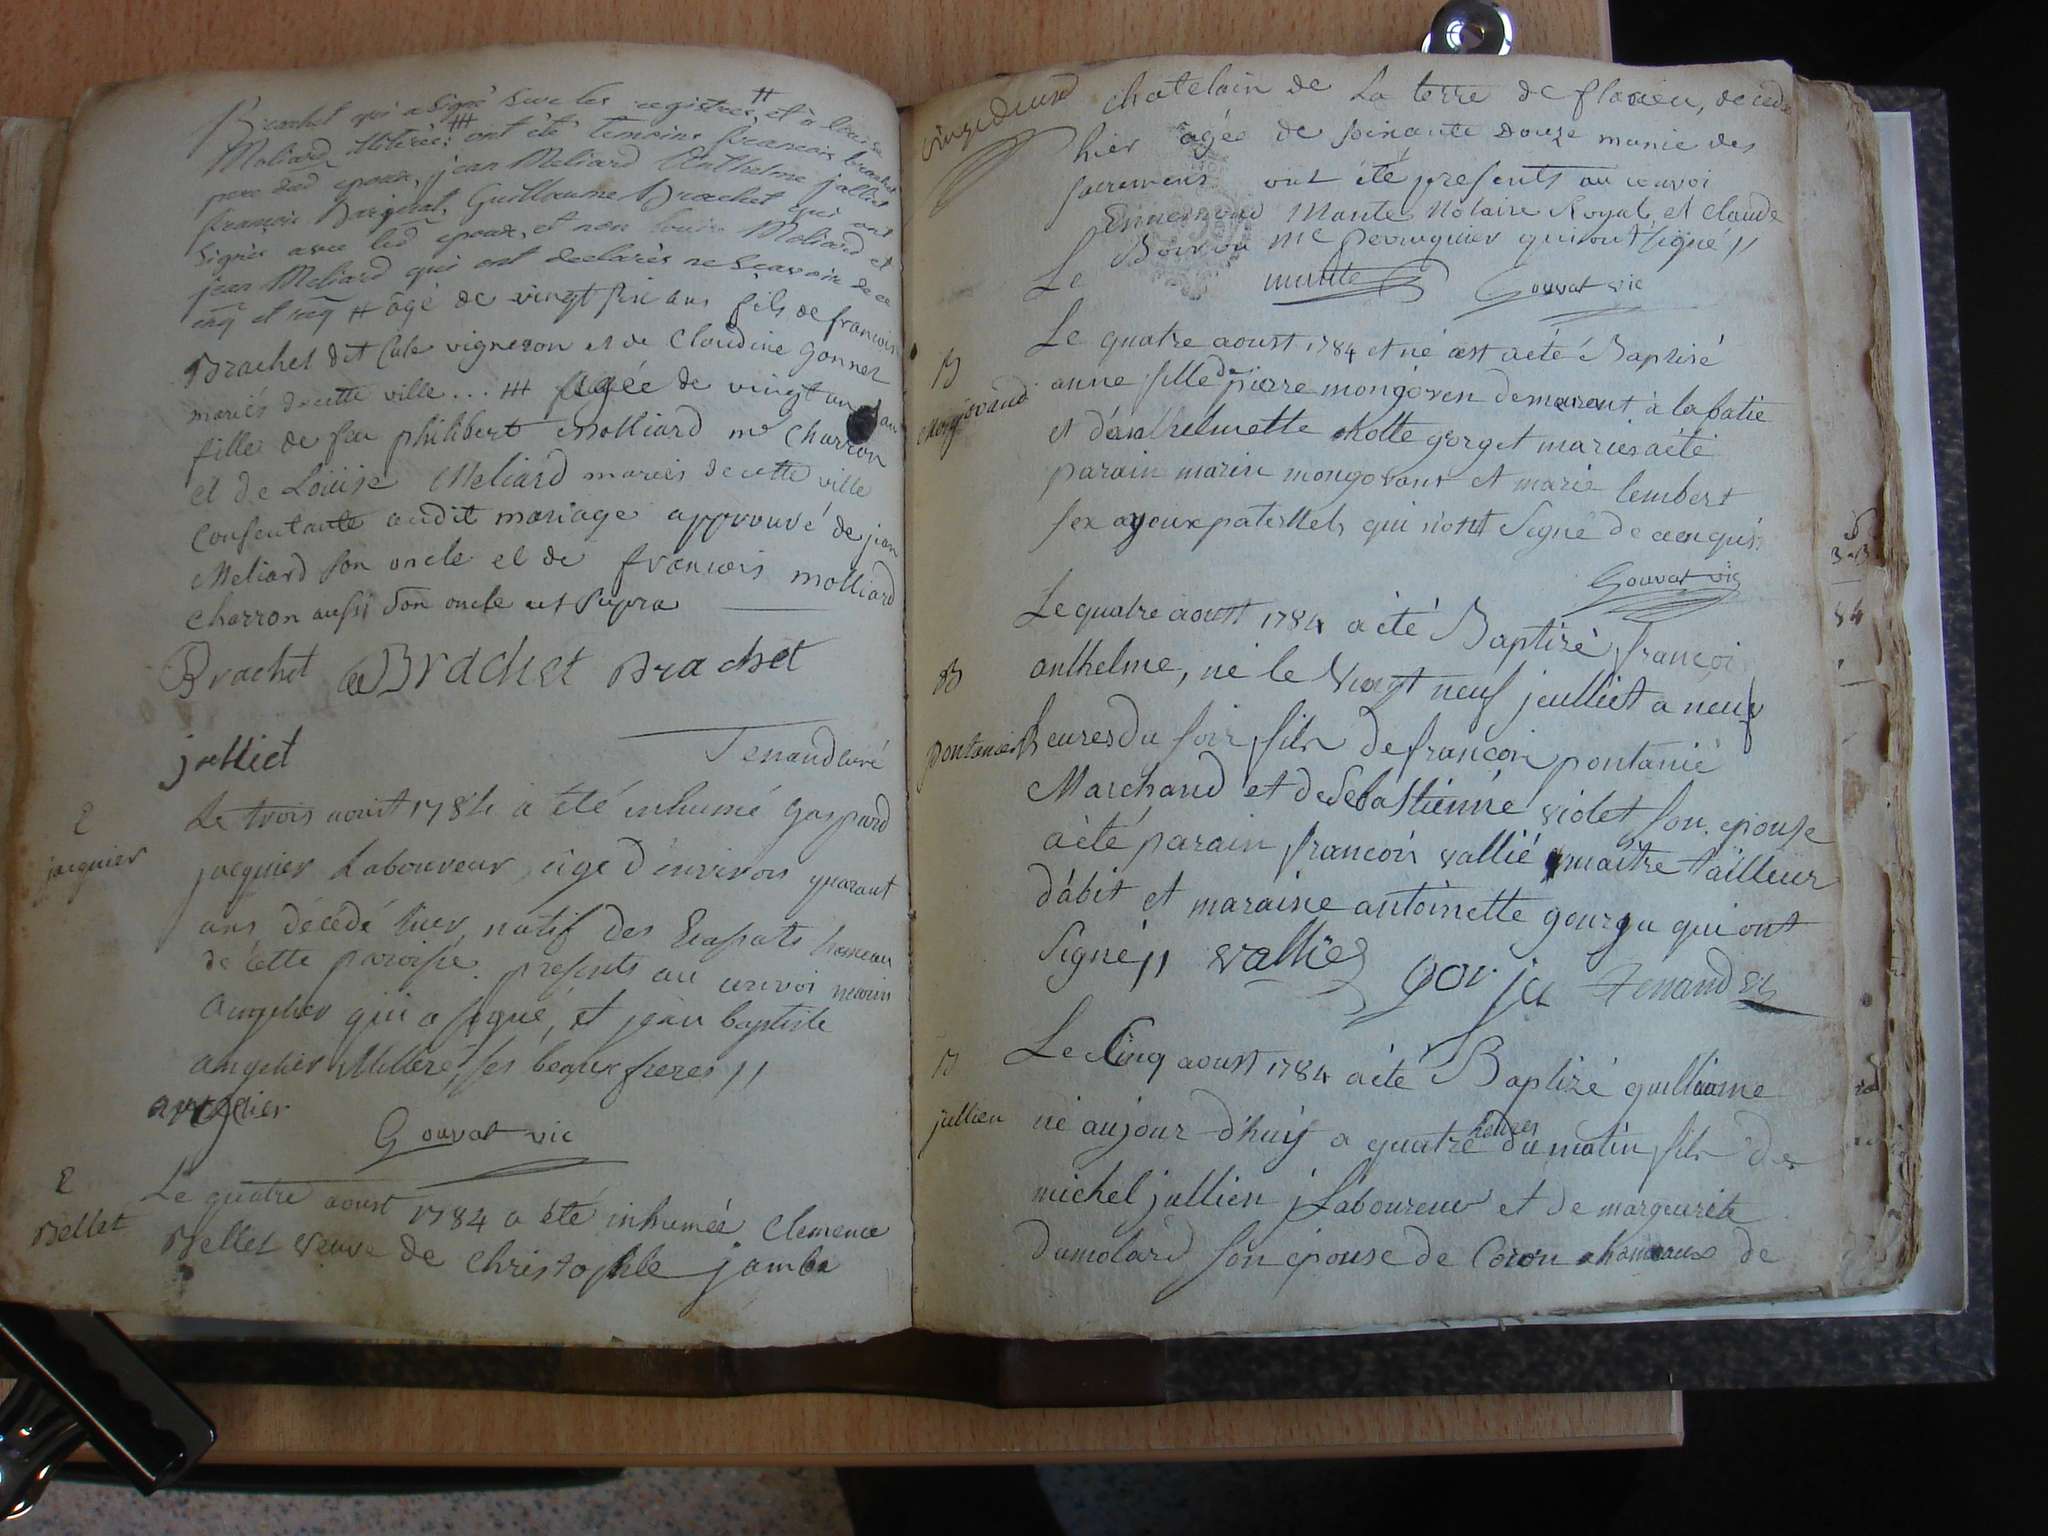 Brachet qui a signé sur les registres # et à Louise
Moliard illitérée; ### ont été temoins francois brachet
pere dud epoux, jean Meliard Anthelme jolliet
francois Guillaume Brachet qui ont
signés avec led epoux, et non louise Moliard et
jean Meliard qui ont declarés ne scavoir de ce
enq et req # agé de vingt six ans fils de francois
Brachet dit Cule vigneron et de Claudine Gonnet
mariés de cette ville ... ### agée de vingt un ans
fille de feu philibert Molliard me Charron
et de Louise Meliard mariés de cette ville
Consentante audit mariage approuvé de jean
Meliard son oncle et de francois molliard
charron aussi son oncle ut supra
Brachet Brachet Brachet
jolliet
Tenaud curé
E
jacquier
Le trois aoust 1784 a été inhumé Gaspard
jacquier Laboureur age d'environ quarant
ans décédé hier, natif des hameau
de cette paroisse presents au convoi
angelier qui a signé, et jean baptiste
angelier Illiteré, ses beaux freres //
angelier
Gouvat vic
E
Bellet
Le quatre aoust 1784 a été inhumée Clemence
Bellet veuve de Christophle jambe
chatelain de La terre de flosieu, decedé
hier agée de soixante douze munie des
sacremens ont été presents au convoi
Ennemond Mante Notaire Royal, et Claude
me perruquier qui ont signé //
Le mante Gouvat vic
B
Mongovand
Le quatre aoust 1784 et né est a eté Baptisé
anne fille de pierre mongoven demurant à la batie
et d'anthelmette Kotte gorget mariés a eté
parain marin mongovant et marie lembert
sex ayeux paternels qui n'ont signé de ce enquis
Gouvat vic
B
pontanier
Le quatre aoust 1784 a été Baptizé françoi
anthelme, né le Vingt neuf jeulliet a neuf
heures du soir, fils de françoi pontanié
Marchand et de Sebastienne violet son epouse
a été parain francois vallié maitre tailleur
d'abit et maraine antoinette gourgu qui ont
signé // vallié gorju Tenaud
B
jullien
Le Cinq aoust 1784 a été Baptizé guilliaume
né aujour d'huy a quatre heures du matin, fils de
michel jullien Laboureur et de margeurite
dumolard son epouse de Coron hameaux de